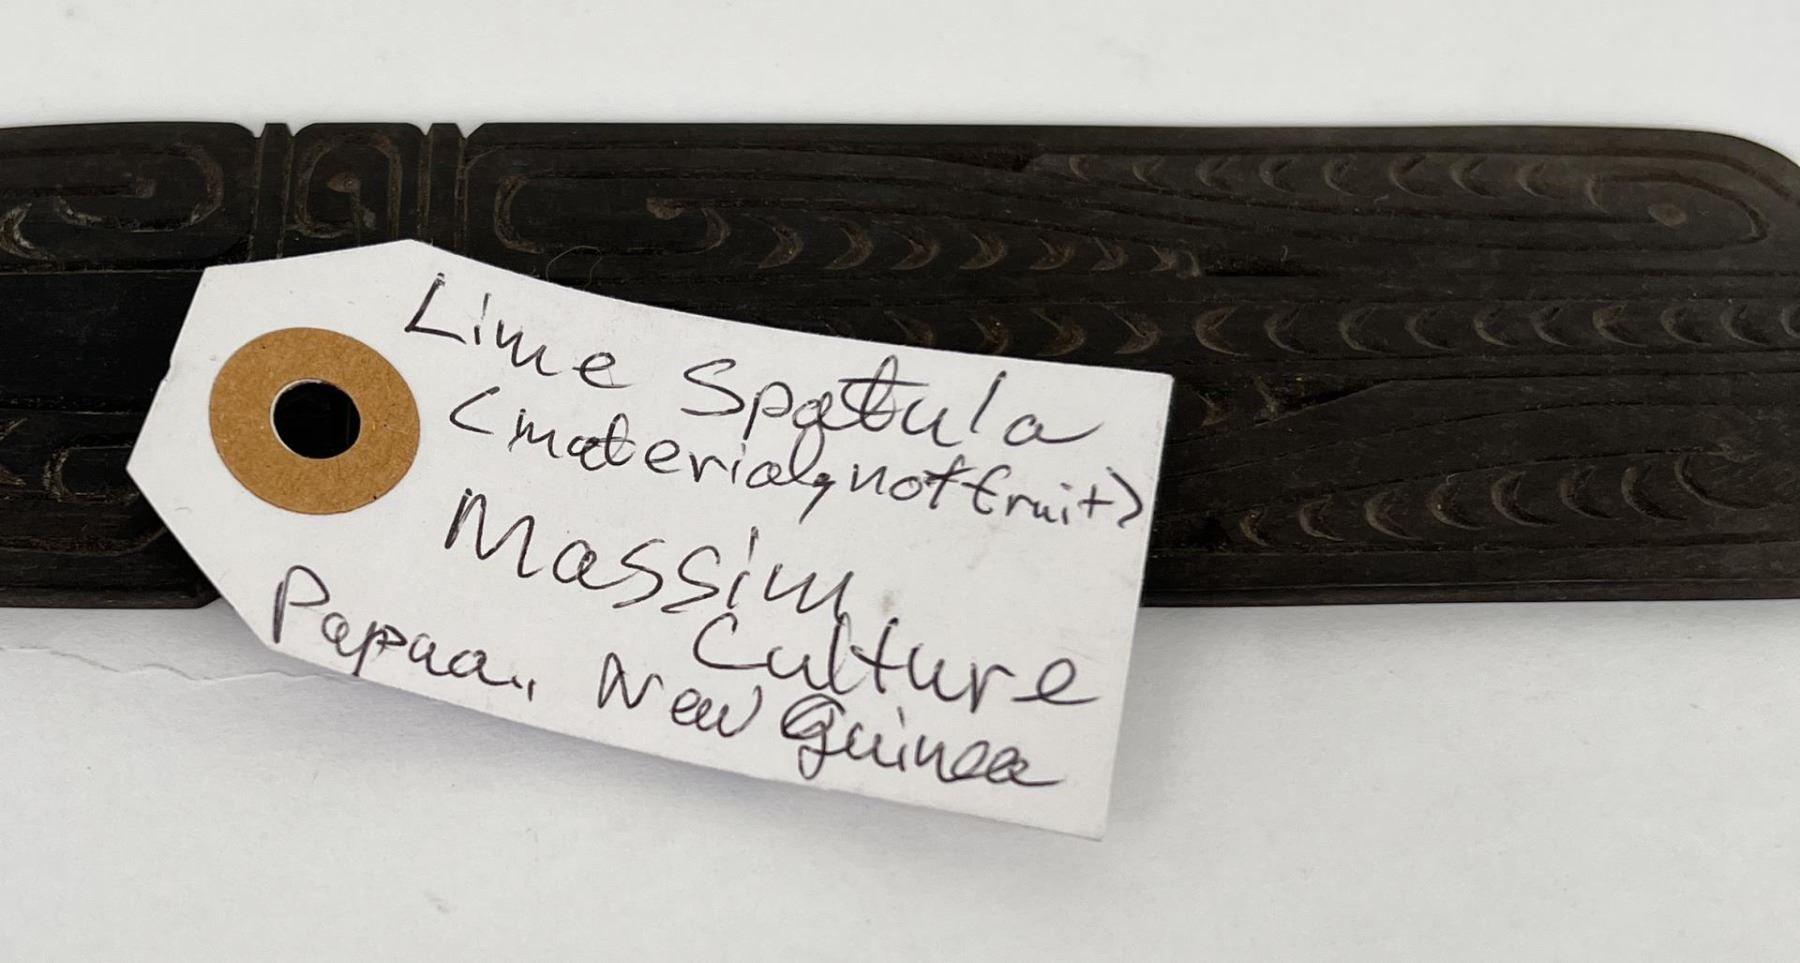 Lime Spatula
(material, not fruit)
Massim
Culture
Papua., New Guinea